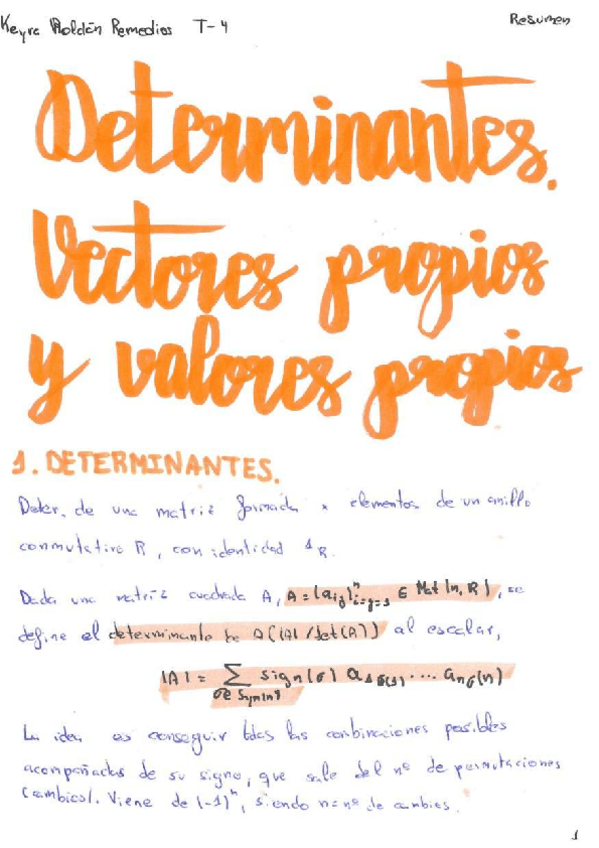 Keyra Roldán Remedios T-4 Resumen
Determinantes.
Vectores propios
y valores propios
1. DETERMINANTES.
Deter. de una matriz formada x elementos de un anillo
conmutativo R, con identidad 1_R.
Dada una matriz cuadrada A, A = (a_ij)^n_i=j=1 ∈ Mat(n, R), se
define el determinante de A (|A| / det(A)) al escalar,
|A| = ∑ sign(σ) a_1σ(1) ... a_nσ(n)
σ∈Sym(n)
La idea es conseguir todas las combinaciones posibles
acompañadas de su signo, que sale del nº de permutaciones
(cambios). Viene de (-1)^n, siendo n = nº de cambios.
1